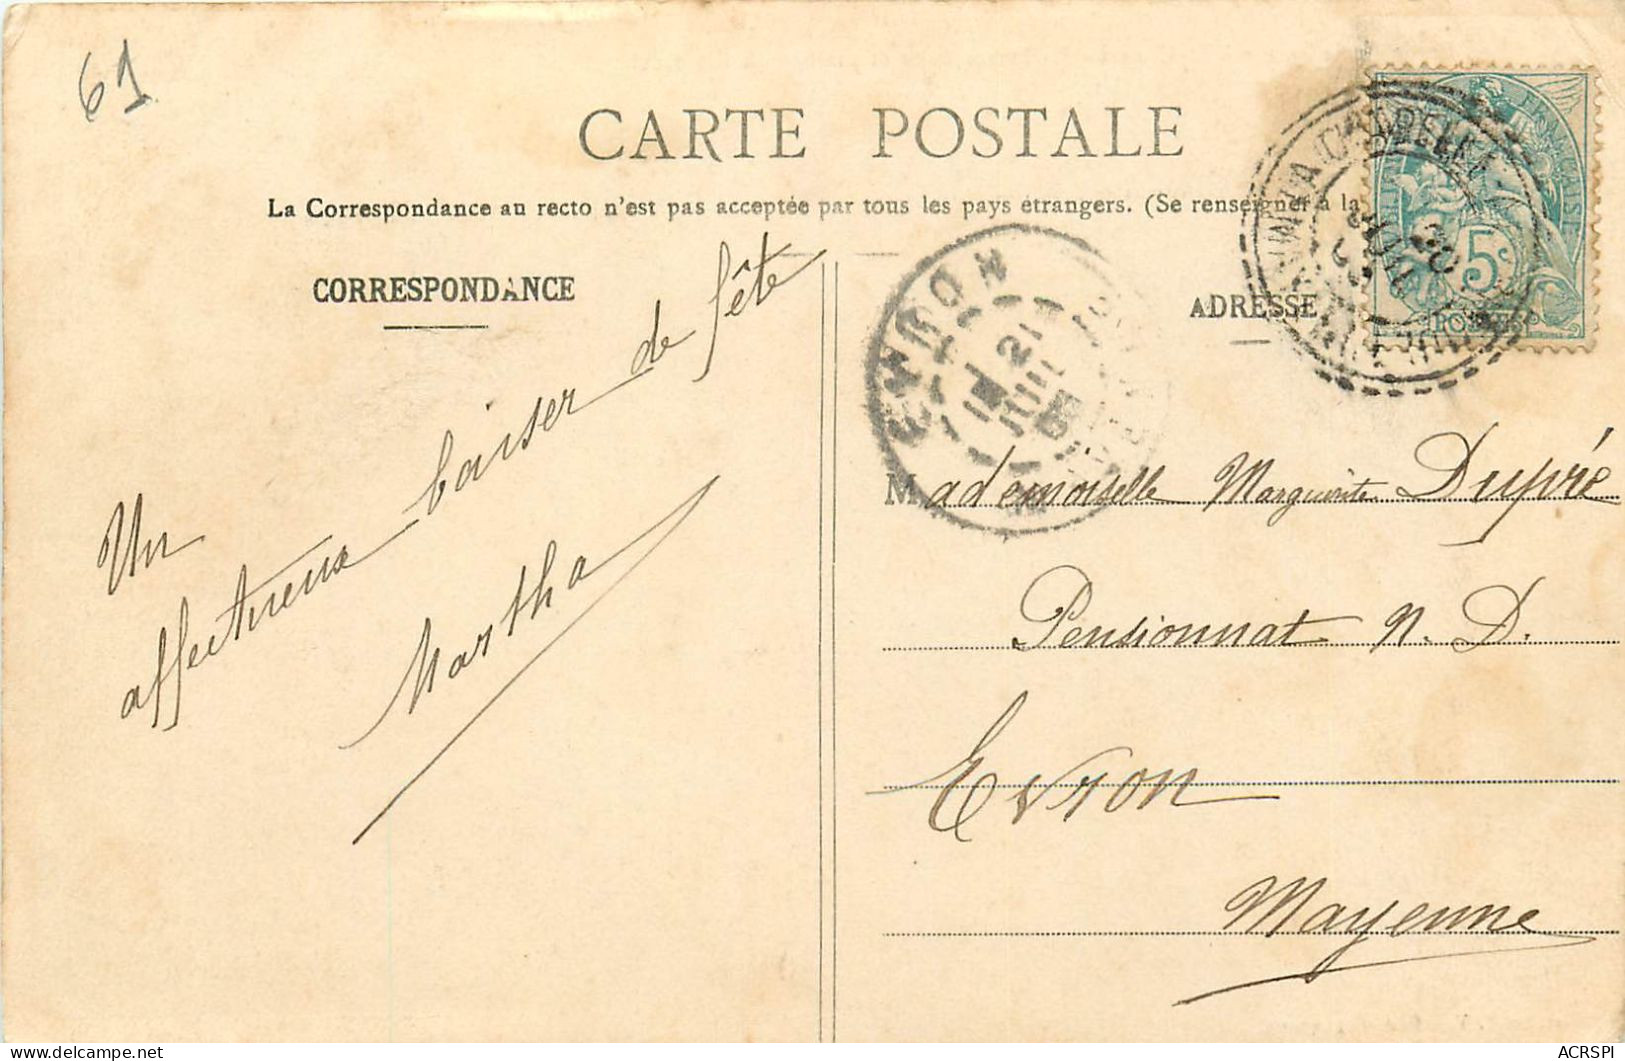 61
CARTE POSTALE
La Correspondance au recto n'est pas acceptée par tous les pays étrangers. (Se renseigner à la
CORRESPONDANCE
ADRESSE
5c
POSTES
EVRON
21
JUIL
Un
affectueux baiser de fête
Martha
Mademoiselle Marguerite Dupré
Pensionnat N. D.
Evron
Mayenne
ACRSPI